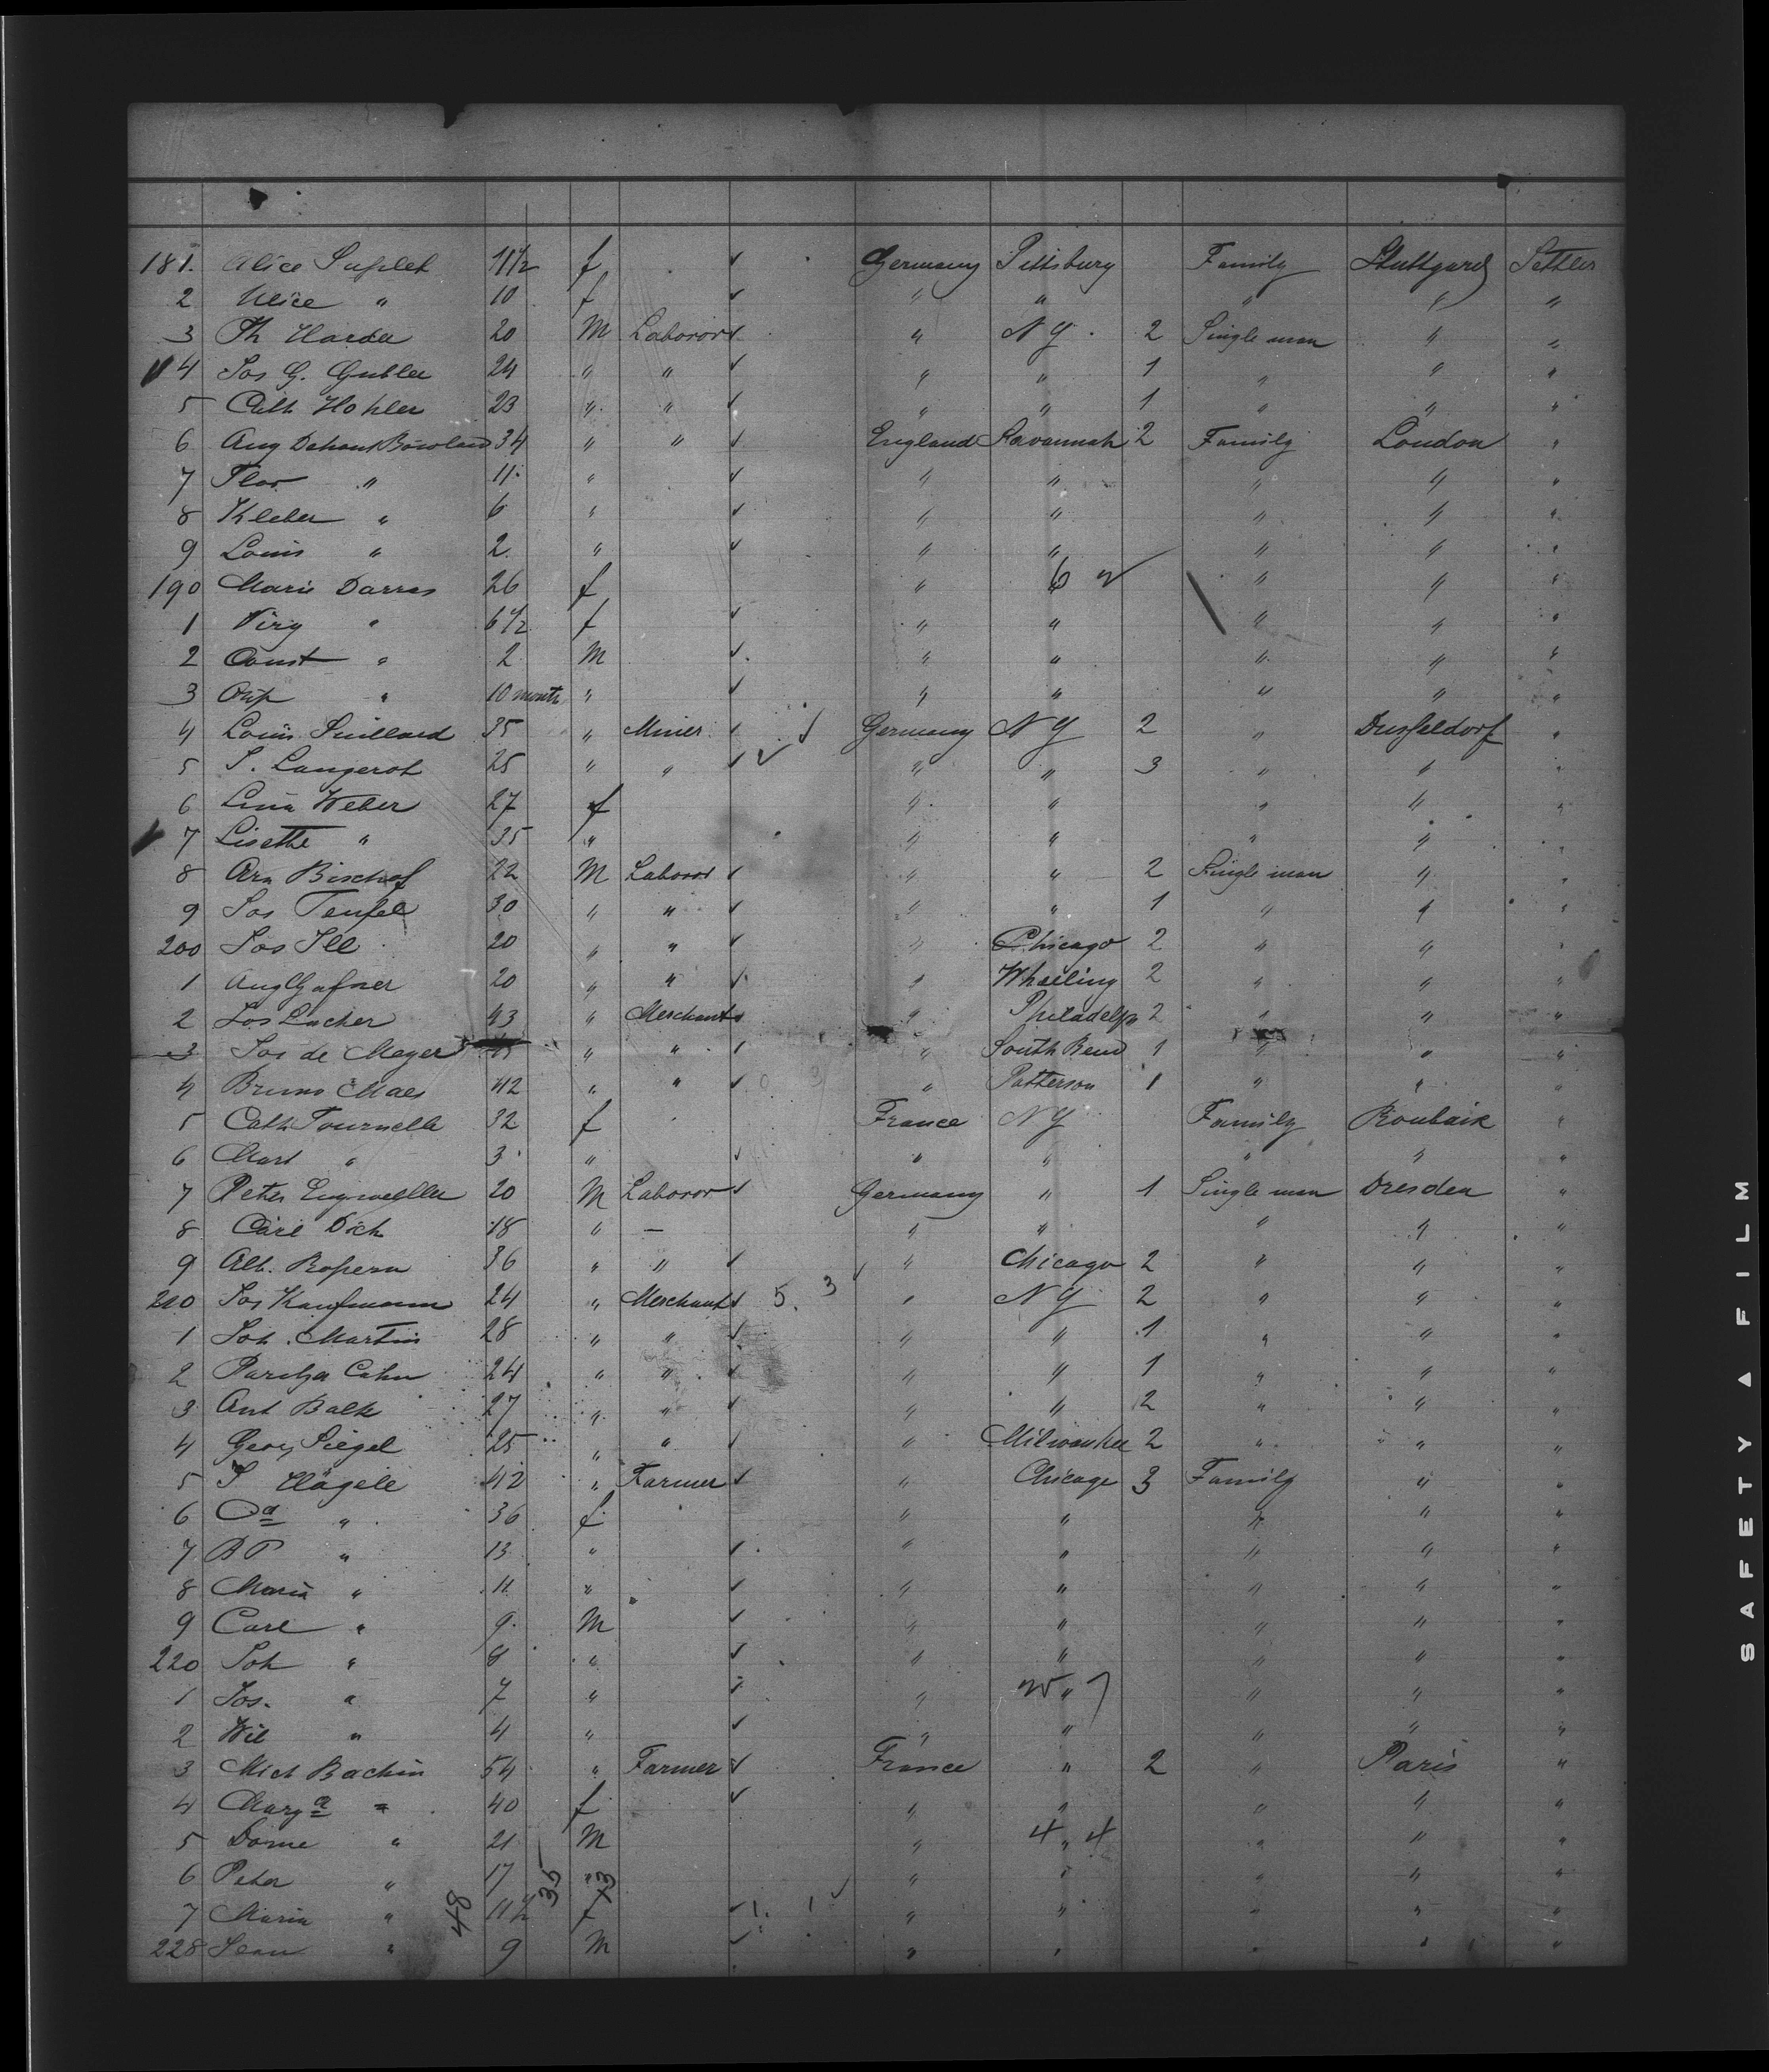 181. Alice Suplet 11 1/2 f Germany Pittsburg Family Stuttgard Settler
2 Alice " 10 f " " " " "
3 Th Harder 20 M Laboror " N Y. 2 Single man " "
4 Jos G. Gubler 24 " " " " 1 " " "
5 Cath Hohler 23 " " " " 1 " " "
6 Aug Dehant 34 " " England Savannah 2 Family London "
7 Flor " 11 " " " " " "
8 Kleber " 6 " " " " " "
9 Louis " 2 " " " " " "
190 Marie Darras 26 f " 6 " " "
1 Virg " 6 1/2 f " " " " "
2 Const " 2 M " " " " "
3 " 10 month " " " " " "
4 Louis 35 " Miner Germany N Y 2 " Dusseldorf "
5 S. Langerot 25 " " " " 3 " " "
6 Lina Weber 27 f " " " " "
7 Lisette " 35 " " " " " "
8 Arn Bischof 22 M Laboror " " 2 Single man " "
9 Jos Teufel 30 " " " " 1 " " "
200 Jos Ill 20 " " " Chicago 2 " " "
1 Aug Gafner 20 " " " Wheeling 2 " " "
2 Jos Lucher 43 " Merchant " Philadelp 2 " " "
3 Jos de Meyer " " " South Bend 1 " " "
4 Bruno Maes 42 " " " Patterson 1 " " "
5 Cath Tournelle 32 f France N Y Family Roubaix "
6 Mart " 3 " " " " " "
7 Peter 20 M Laboror Germany " 1 Single man Dresden "
8 Carl Dich 18 " — " " " " "
9 Alb. 36 " " " Chicago 2 " " "
210 Jos Kaufmann 24 " Merchant 5. 3 " N Y 2 " " "
1 Joh. Martin 28 " " " " 1 " " "
2 Cahn 24 " " " " 1 " " "
3 Ant Balk 27 " " " " 2 " " "
4 Georg Siegel 25 " " " Milwaukee 2 " " "
5 J Hägele 42 " Farmer " Chicago 3 Family " "
6 " 36 f " " " " "
7 " 13 " " " " " "
8 Maria " 11 " " " " " "
9 Carl " 9 M " " " " "
220 Joh " 8 " " " " " "
1 Jos. " 7 " " " 7 " " "
2 Wil " 4 " " " " " "
3 Mich Bachin 54 " Farmer France " 2 " Paris "
4 Marg a " 40 f " " " " "
5 " 21 M " 4 " 4 " " "
6 Peter " 17 " " " " " "
7 Maria " 11 1/2 f 1. 1 " " " " "
228 Jean " 9 M " " " " "
48 35 13
SAFETY ▲ FILM